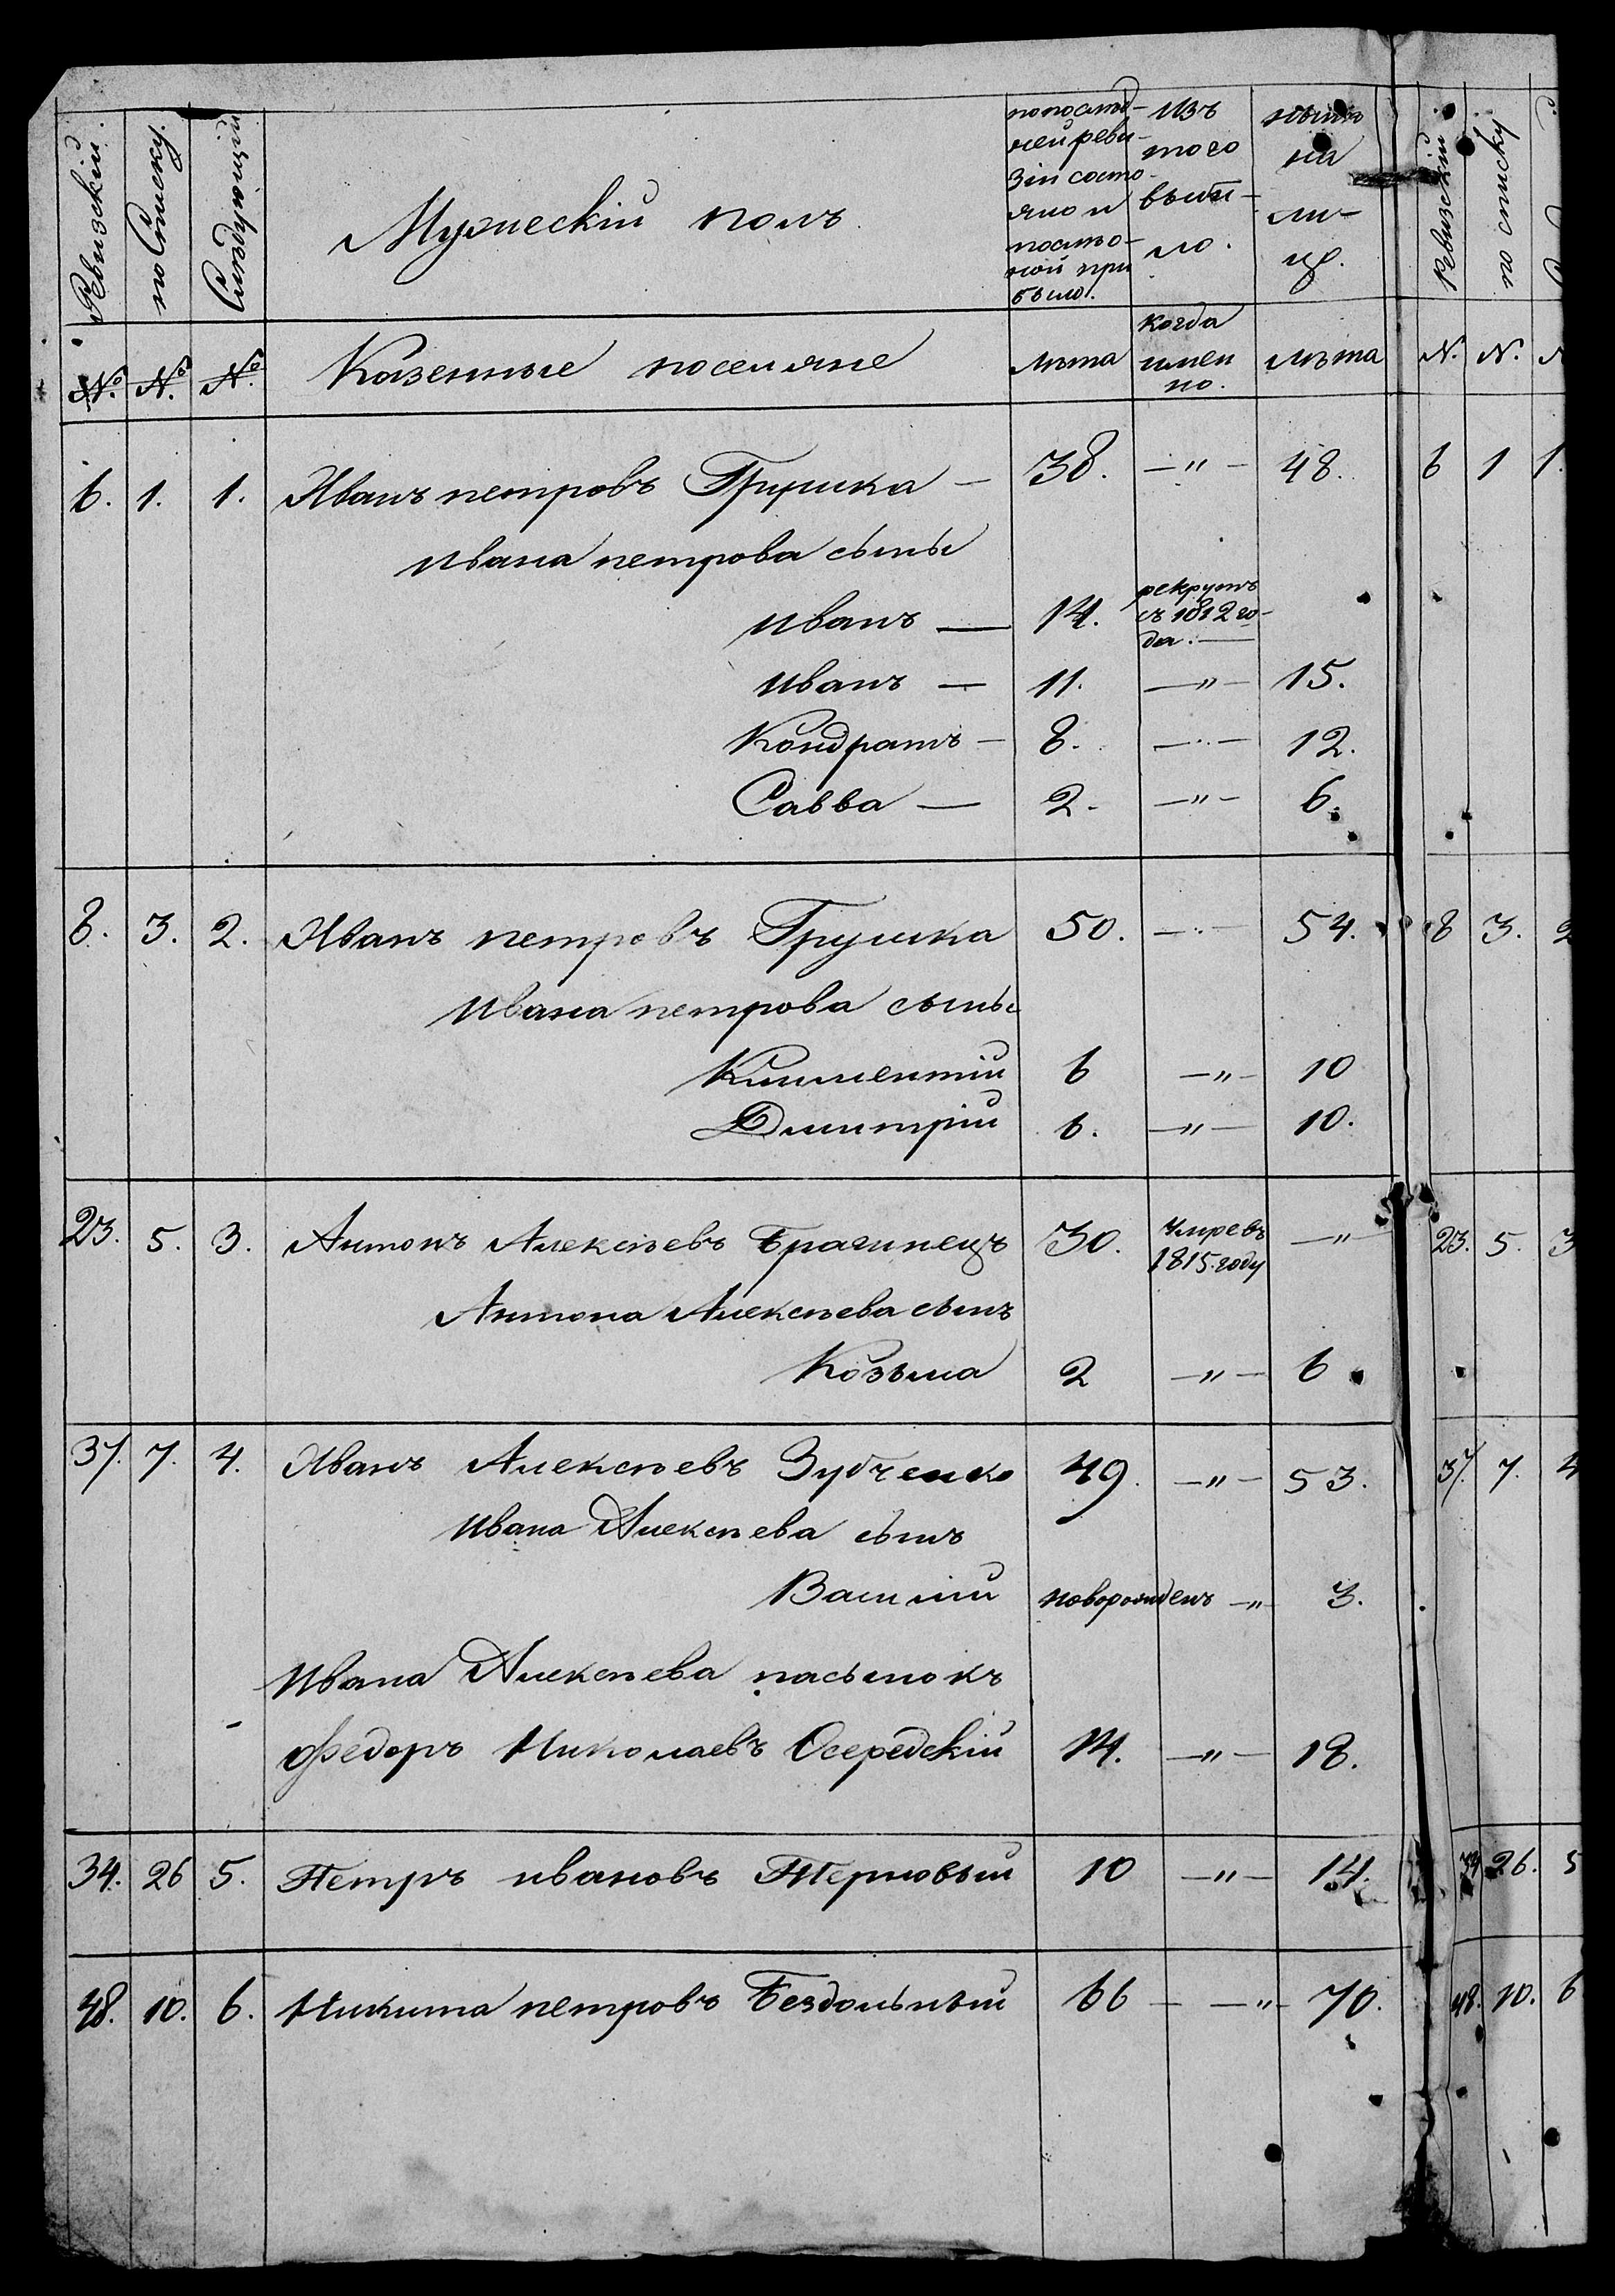 Ревизскій. по Списку. Слѣдующій
Мужескій полъ.
по послѣд-
ней реви-
зіи состо-
яло и
послѣ о-
ной при
было.
Изъ
того
выбы-
ло.
нынѣ
на
ли-
цо.
Ревизскій по списку
№. №. №. Казенные поселяне лѣта когда имен но. лѣта №. №.
6. 1. 1. Иванъ петровъ Грушка — 38. —"— 48. 6 1 1.
Ивана петрова сыны
иванъ — 14. рекрутъ съ 1812 го- да.
иванъ — 11. —"— 15.
Кондратъ — 8. —"— 12.
Савва — 2. —"— 6.
8. 3. 2. Иванъ петровъ Грушка 50. —"— 54. 8 3. 2
Ивана петрова сыны
Климентій 6 —"— 10
Дмитрій 6. —"— 10.
23. 5. 3. Антонъ Алексѣевъ Брагинецъ 30. Умре въ 1815. году —"— 23. 5. 3
Антона Алексѣева сынъ
Козьма 2 —"— 6
37. 7. 4. Иванъ Алексѣевъ Зубченко 49. —"— 53. 37. 7. 4
Ивана Алексѣева сынъ
Василій новорожденъ —"— 3.
Ивана Алексѣева пасынокъ
Федоръ Николаевъ Осередскій 14. —"— 18.
34. 26 5. Петръ ивановъ Терновый 10 —"— 14. 34 26. 5
48. 10. 6. Никита петровъ Бездольный 66 — —"— 70. 48. 10. 6